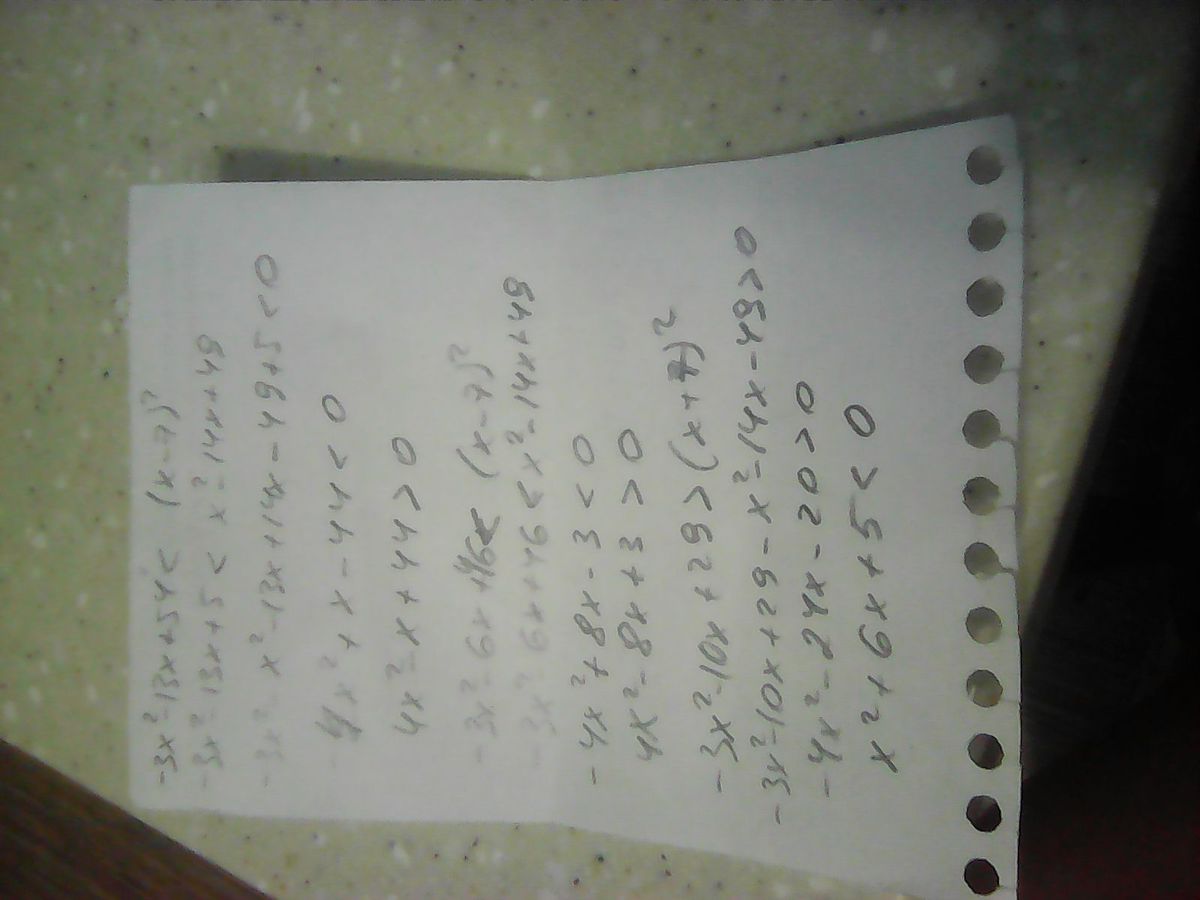 -3x²-13x+54 < (x-7)²
-3x²-13x+5 < x²-14x+49
-3x²-x²-13x+14x-49+5<0
-4x²+x-44<0
4x²-x+44>0
-3x²-6x+46< (x-7)²
-3x²-6x+46<x²-14x+49
-4x²+8x-3<0
4x²-8x+3>0
-3x²-10x+29>(x+7)²
-3x²-10x+29-x²-14x-49>0
-4x²-24x-20>0
x²+6x+5<0